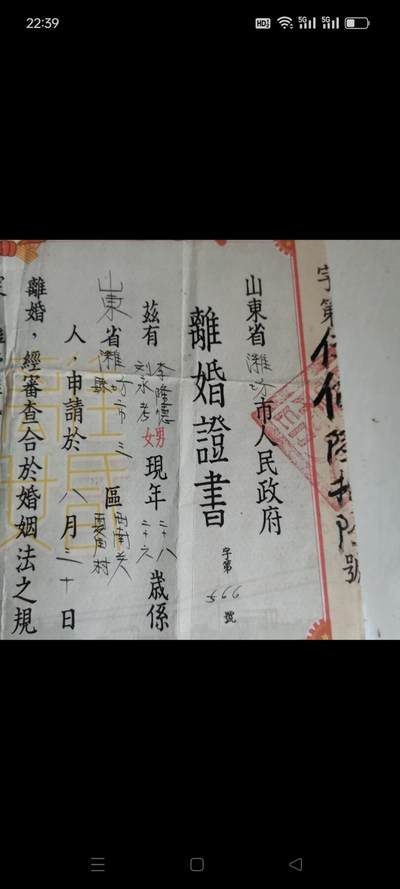 22:39
字第伍佰陸拾陸號
山東省濰坊市人民政府
離婚證書
字第566號
茲有李隆德男現年二十八歲係
女二十六
山東省濰坊市三區西南关
村
人,申請於八月十日
離婚,經審查合於婚姻法之規